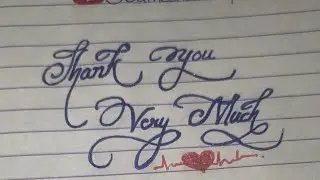 Thank You
Very Much